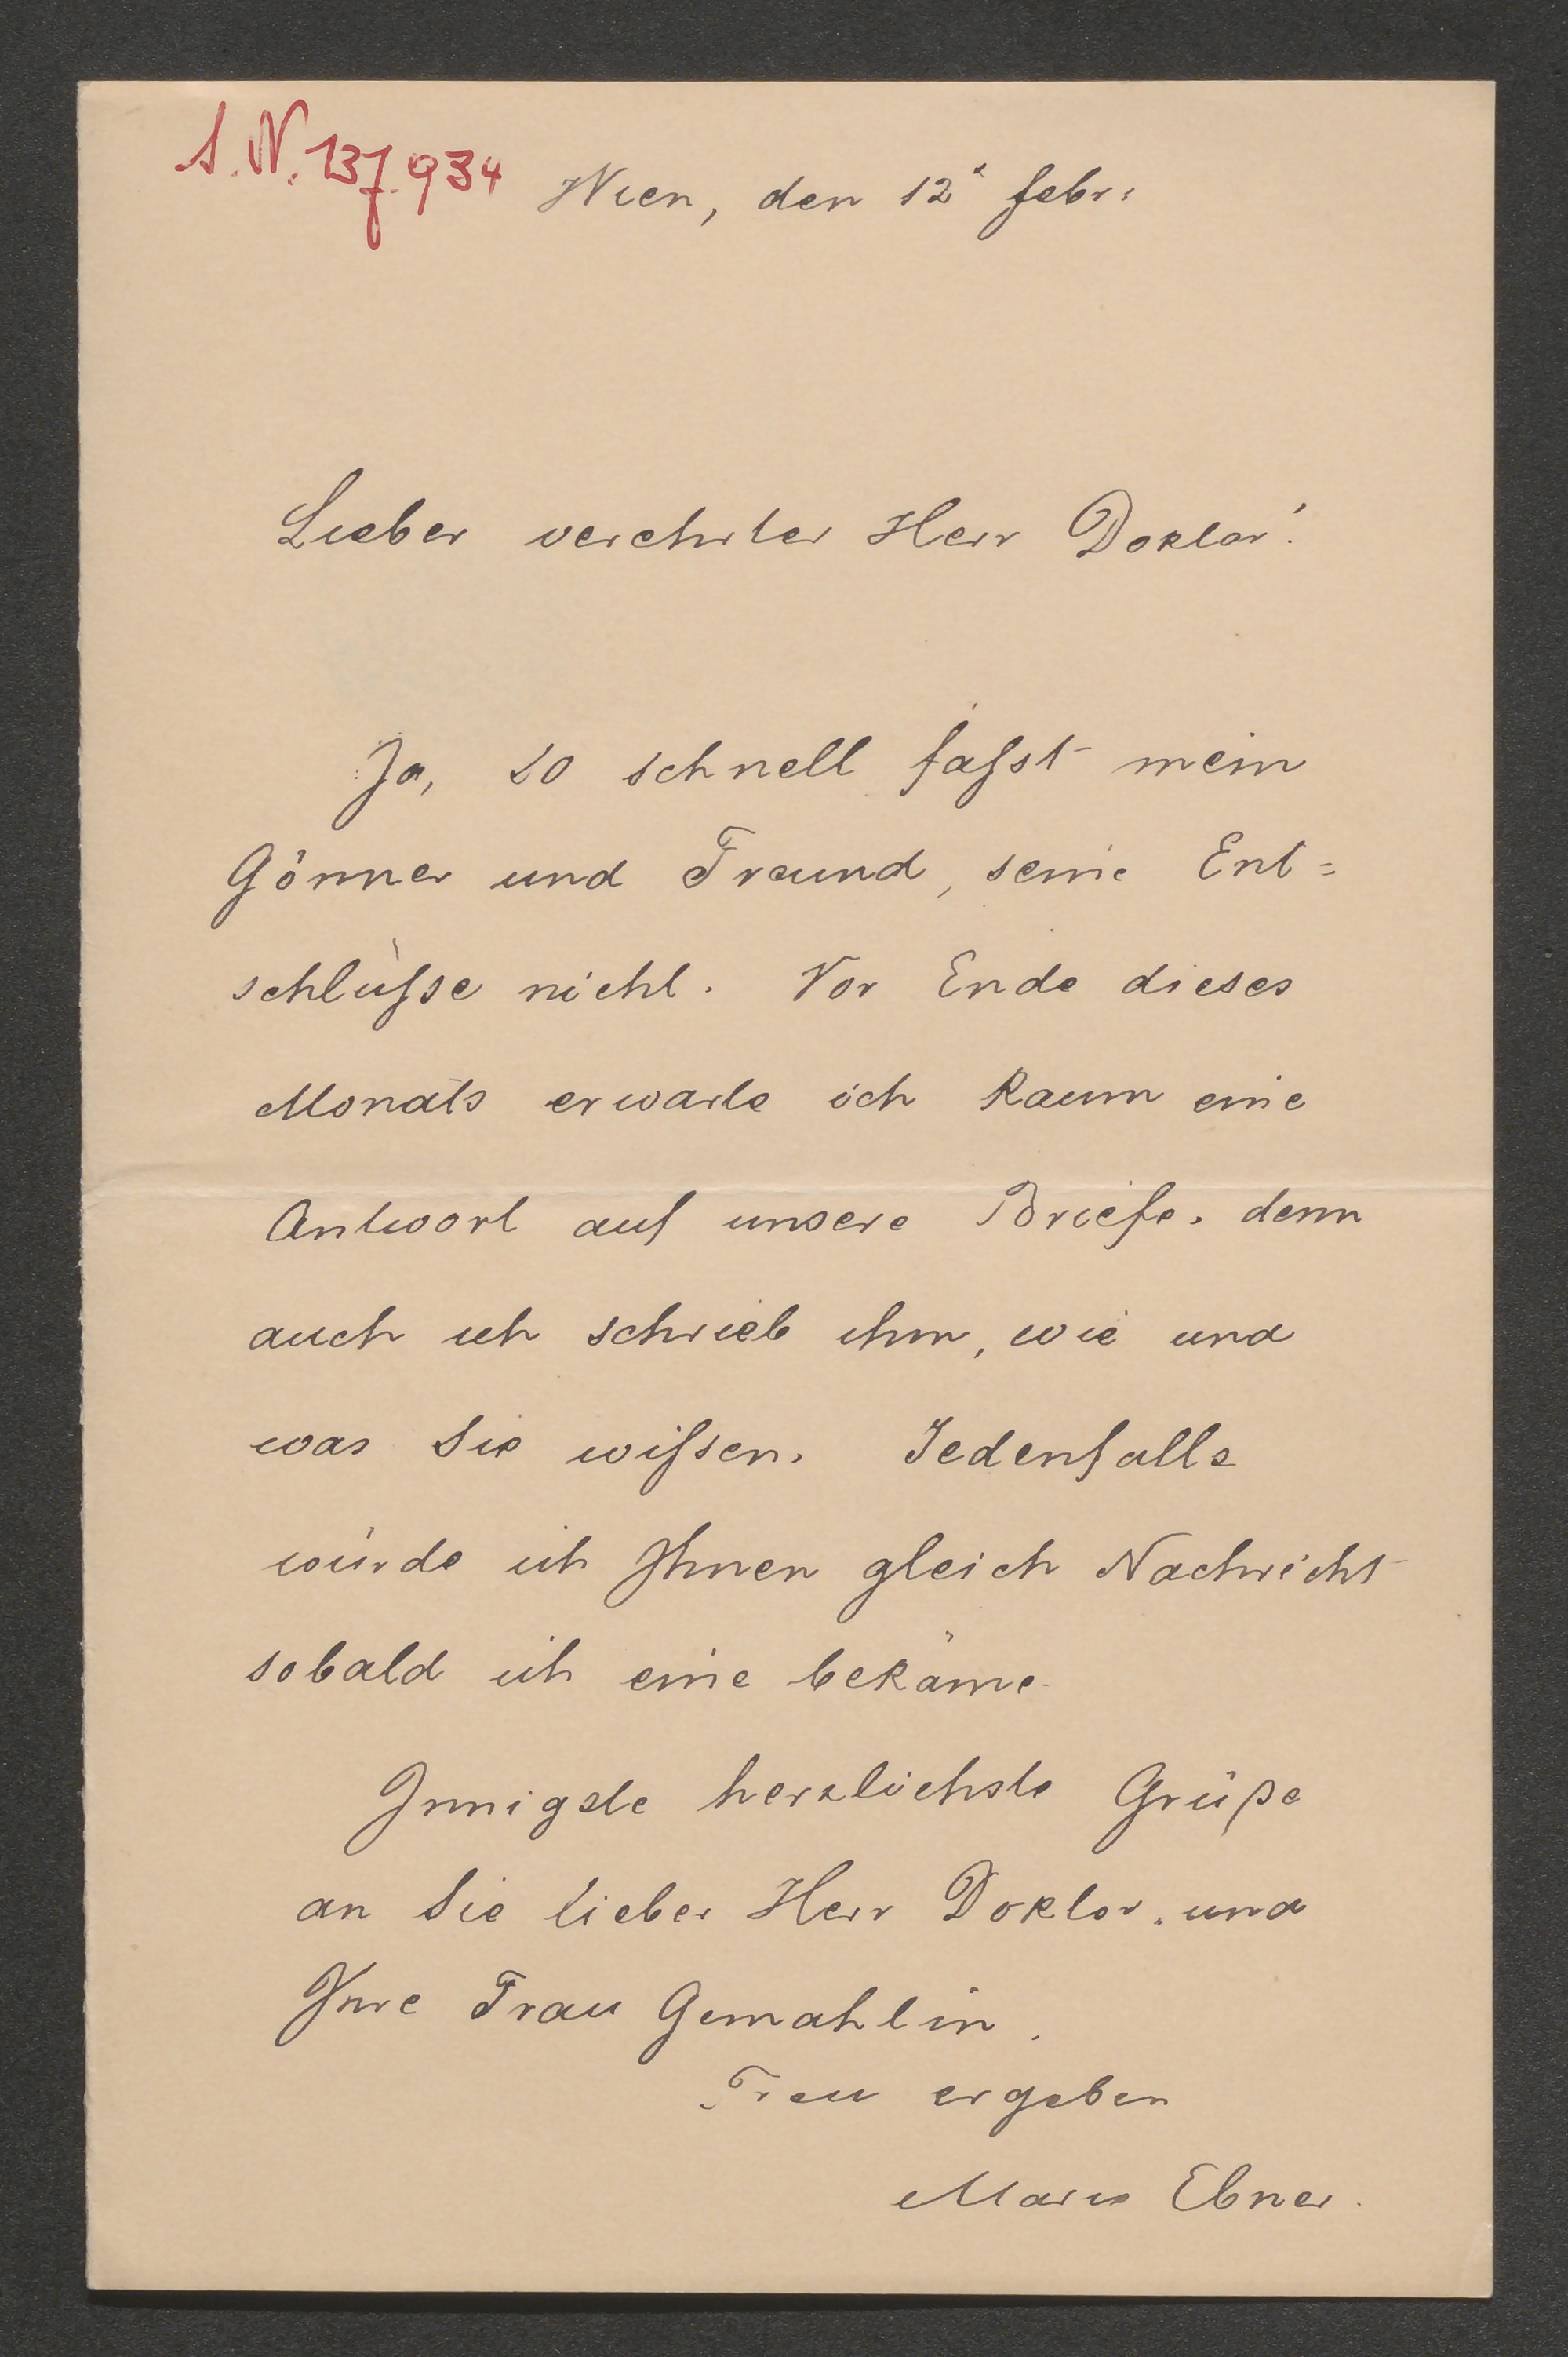 I. N. 137.934
Wien, den 12t febr:
Lieber verehrter Herr Doktor!
Ja, so schnell faßst mein
Gönner und Freund, seine Ent=
schlüßse nicht. Vor Ende dieses
Monats erwarte ich kaum eine
Antwort auf unsere Briefe. denn
auch ich schrieb ihm, wie und
was Sie wißsen. Jedenfalls
würde ich Ihnen gleich Nachricht
sobald ich eine bekäme.
Innigste herzlichste Grüße
an Sie lieber Herr Doktor. und
Ihre Frau Gemahlin.
Treu ergeben
Marie Ebner.